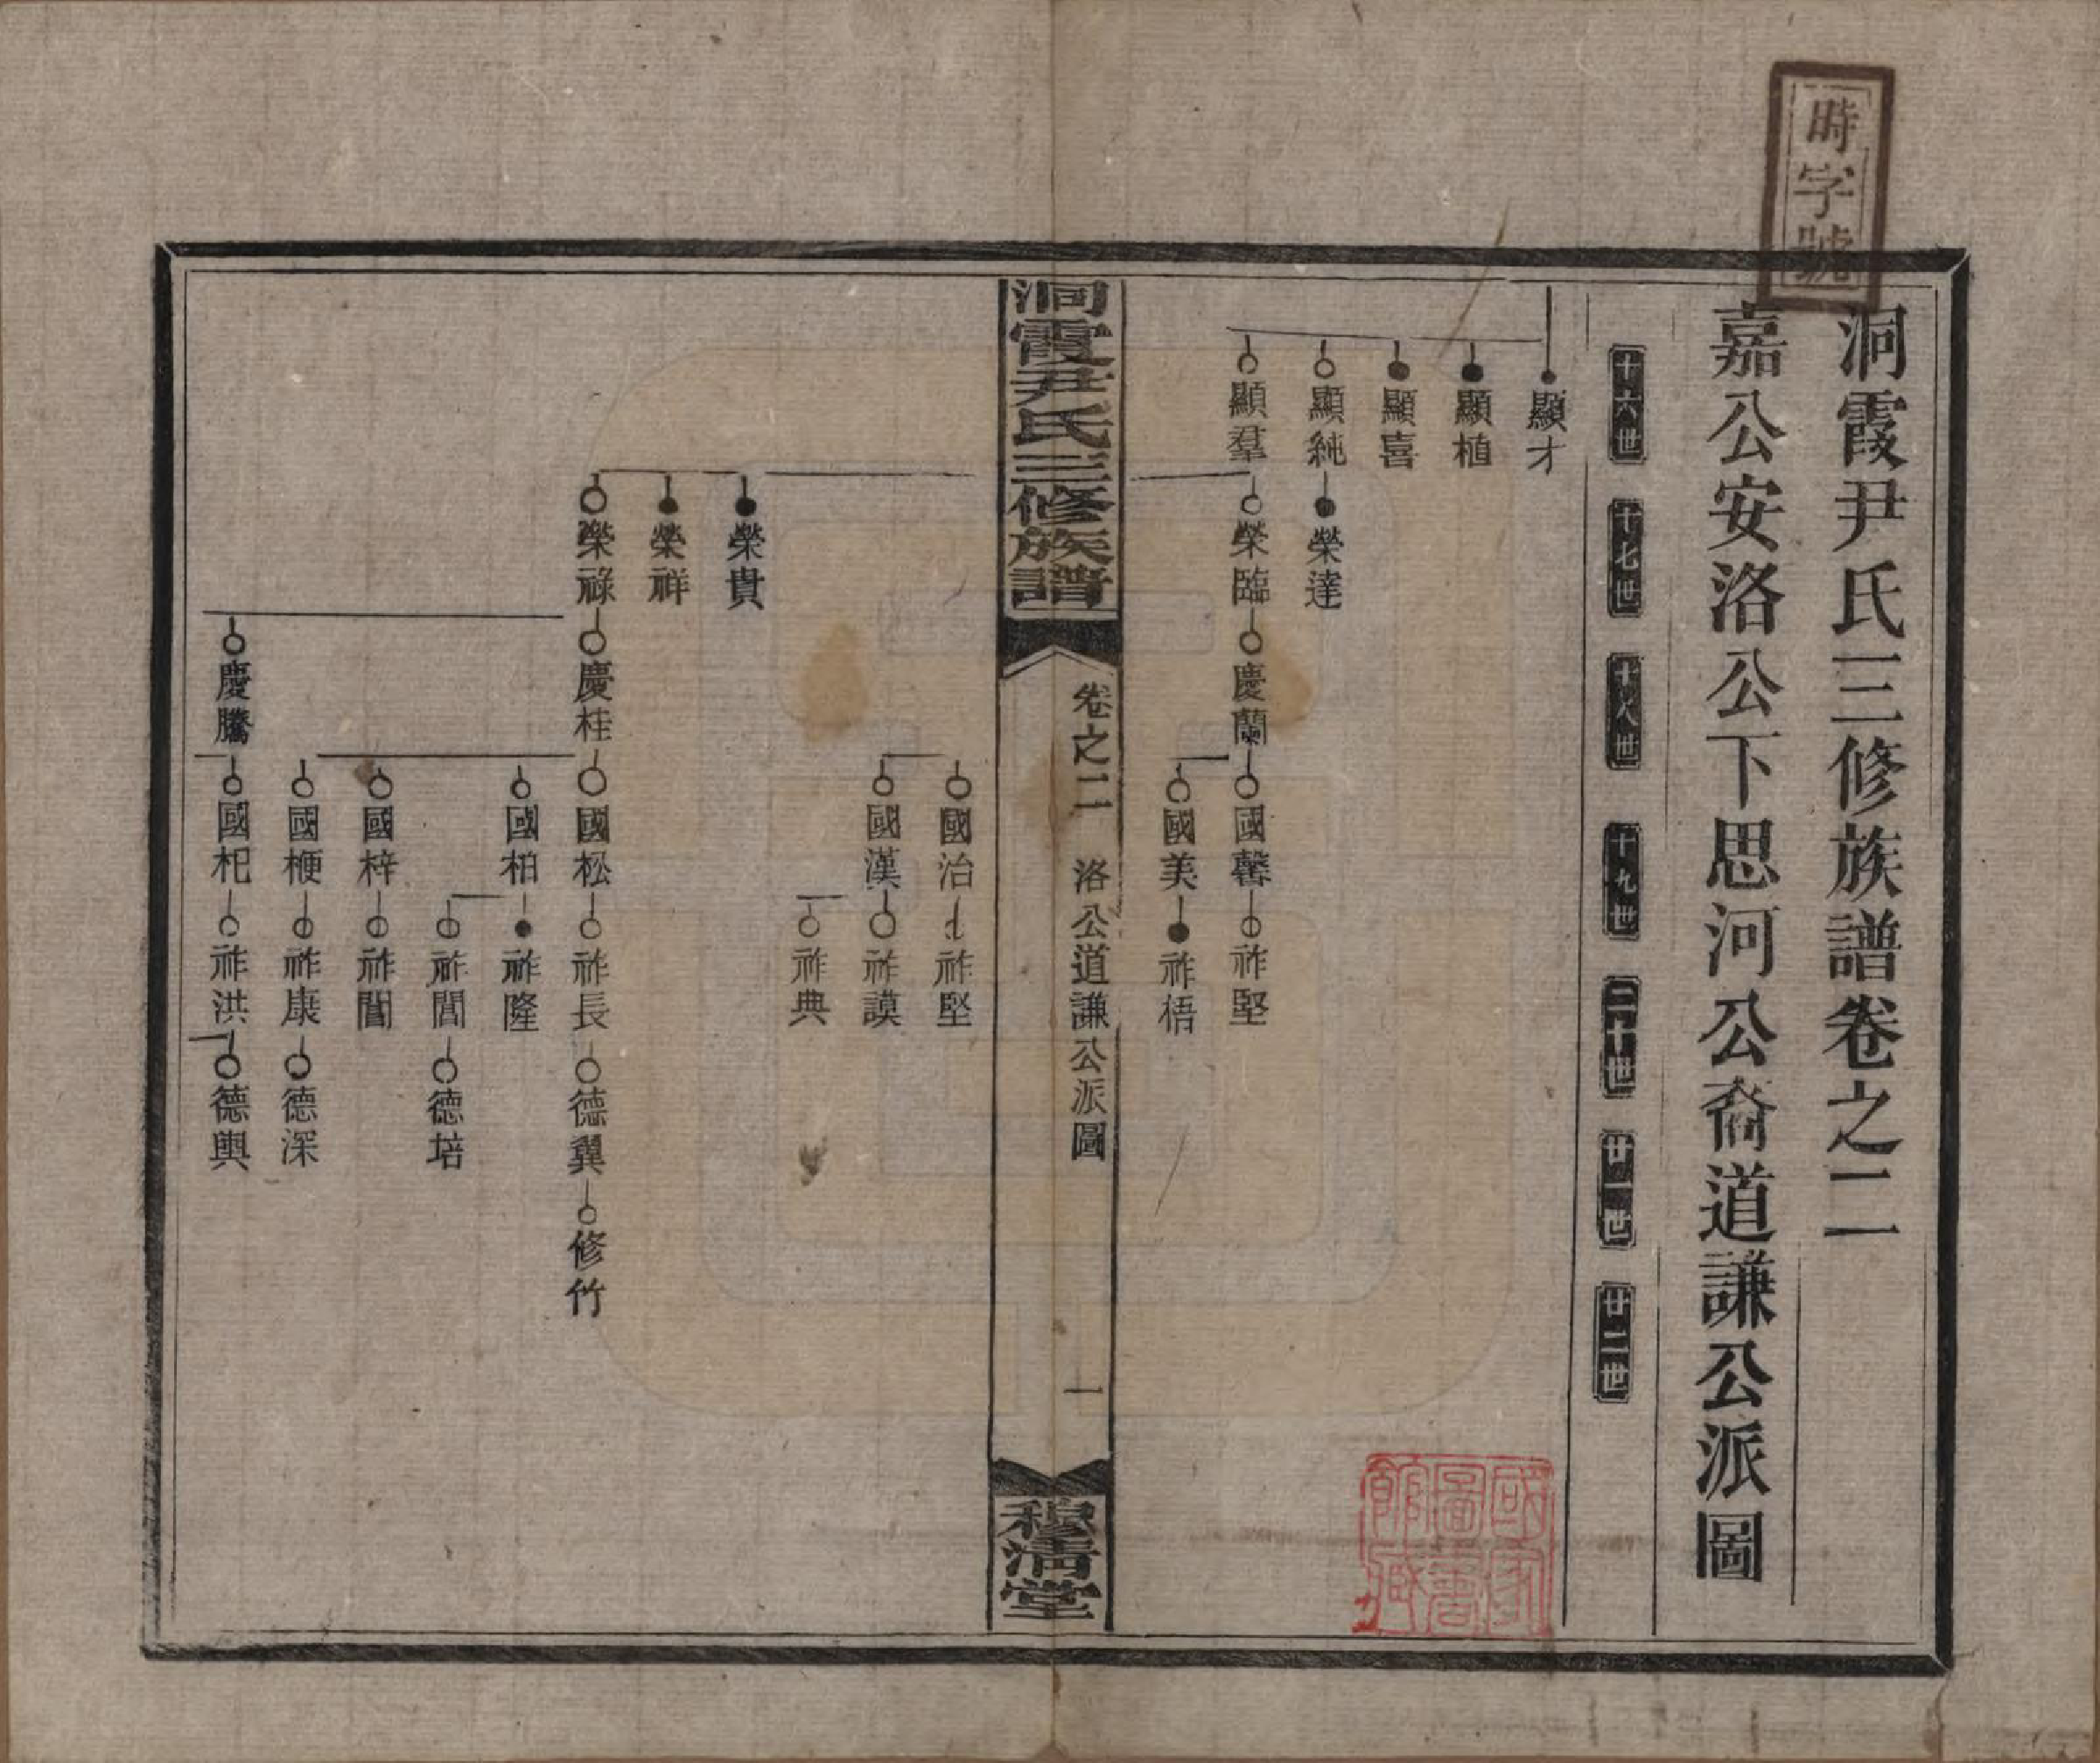 時字號
洞霞尹氏三修族譜卷之二
嘉公安洛公下思河公裔道謙公派圖
十六世 十七世 十八世 十九世 二十世 廿一世 廿二世
顯才
顯植
顯喜
顯純 榮達
顯羣 榮臨 慶蘭 國馨 祚堅
國美 祚梧
洞霞尹氏三修族譜 卷之二 洛公道謙公派圖 一 穆清堂
國治 祚堅
國漢 祚謨
祚典
榮貴
榮祥
榮祿 慶桂 國松 祚長 德翼 修竹
國柏 祚隆
祚閭 德培
國梓 祚閶
國梗 祚康 德深
慶騰 國杞 祚洪 德輿
國家圖書館藏